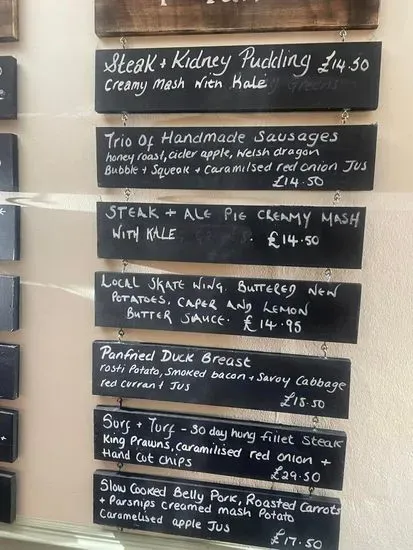 Steak + Kidney Pudding £14.50
Creamy Mash with Kale
Trio Of Handmade Sausages
honey roast, cider apple, Welsh dragon
Bubble + Squeak + Caramilsed red onion Jus
£14.50
STEAK + ALE PIE CREAMY MASH
WITH KALE . £14.50
LOCAL SKATE WING. BUTTERED NEW
POTATOES, CAPER AND LEMON
BUTTER SAUCE. £14.95
Panfried Duck Breast
rosti Potato, smoked bacon + Savoy Cabbage
red currant Jus
£18.50
Surf + Turf - 30 day hung fillet Steak
King Prawns, caramilised red onion +
Hand Cut chips
£29.50
Slow Cooked Belly Pork, Roasted Carrots
+ Parsnips creamed mash Potato
Caramelised apple Jus
£17.50